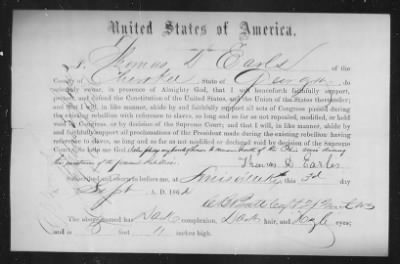 United States of America.
I, Thomas D Earls of the
County of Cherokee State of Georgia do
solemnly swear, in presence of Almighty God, that I will henceforth faithfully support,
protect, and defend the Constitution of the United States, and the Union of the States thereunder;
and that I will, in like manner, abide by and faithfully support all acts of Congress passed during
the existing rebellion with reference to slaves, so long and so far as not repealed, modified, or held
void by Congress, or by decision of the Supreme Court; and that I will, in like manner, abide by
and faithfully support all proclamations of the President made during the existing rebellion having
reference to slaves, so long and so far as not modified or declared void by decision of the Supreme
Court, so help me God
Thomas D. Earles
Subscribed and sworn to before me, at Louisville Ky, this 3d day
A. D. 186
The above named has complexion, Dark hair, and eyes;
and is feet 11 inches high.